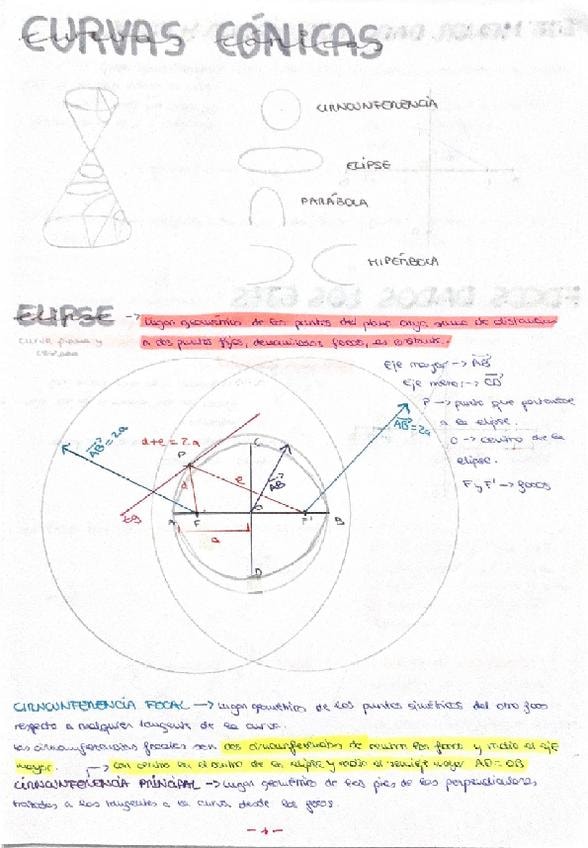 CURVAS CÓNICAS
CIRCUNFERENCIA
ELIPSE
PARÁBOLA
HIPÉRBOLA
ELIPSE → Lugar geométrico de los puntos del plano cuya suma de distancias
a dos puntos fijos, denominados focos, es constante.
curva plana y
cerrada
Eje mayor → AB
Eje menor → CD
P → punto que pertenece
a la elipse.
O → centro de la
elipse.
F y F' → focos
AB = 2a
d + e = 2a
P
C
AB
AB = 2a
d
e
tg
A
F
O
F'
B
a
D
CIRCUNFERENCIA FOCAL → Lugar geométrico de los puntos simétricos del otro foco
respecto a cualquier tangente de la curva.
Las circunferencias focales son dos circunferencias de centro los focos y radio el eje
mayor. → con centro en el centro de la elipse y radio el semieje mayor AO = OB
CIRCUNFERENCIA PRINCIPAL → Lugar geométrico de los pies de las perpendiculares
trazadas a las tangentes a la curva desde los focos.